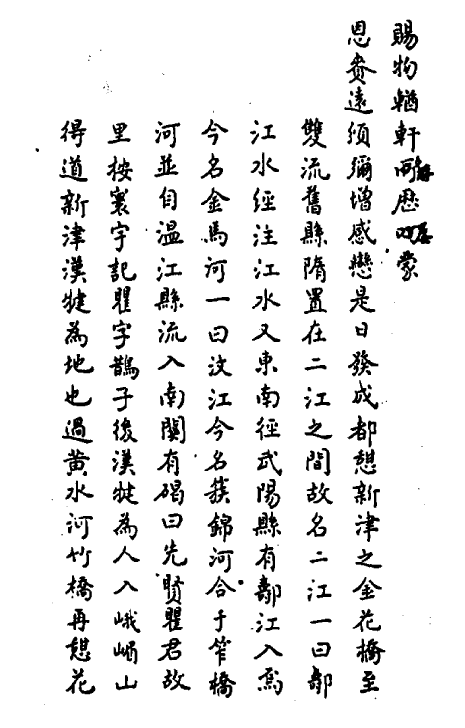 賜物輶軒所歷屢蒙
恩賚遠頒彌增感戀是日發成都憇新津之金花橋至
雙流舊縣隋置在二江之間故名二江一曰郫
江水經注江水又東南徑武陽縣有鄩江入焉
今名金馬河一曰汶江今名簇錦河合于笮橋
河並自温江縣流入南關有碣曰先賢瞿君故
里桉寰宇記瞿字鵲子後漢犍為人入峨嵋山
得道新津漢犍為地也過黄水河竹橋再憇花